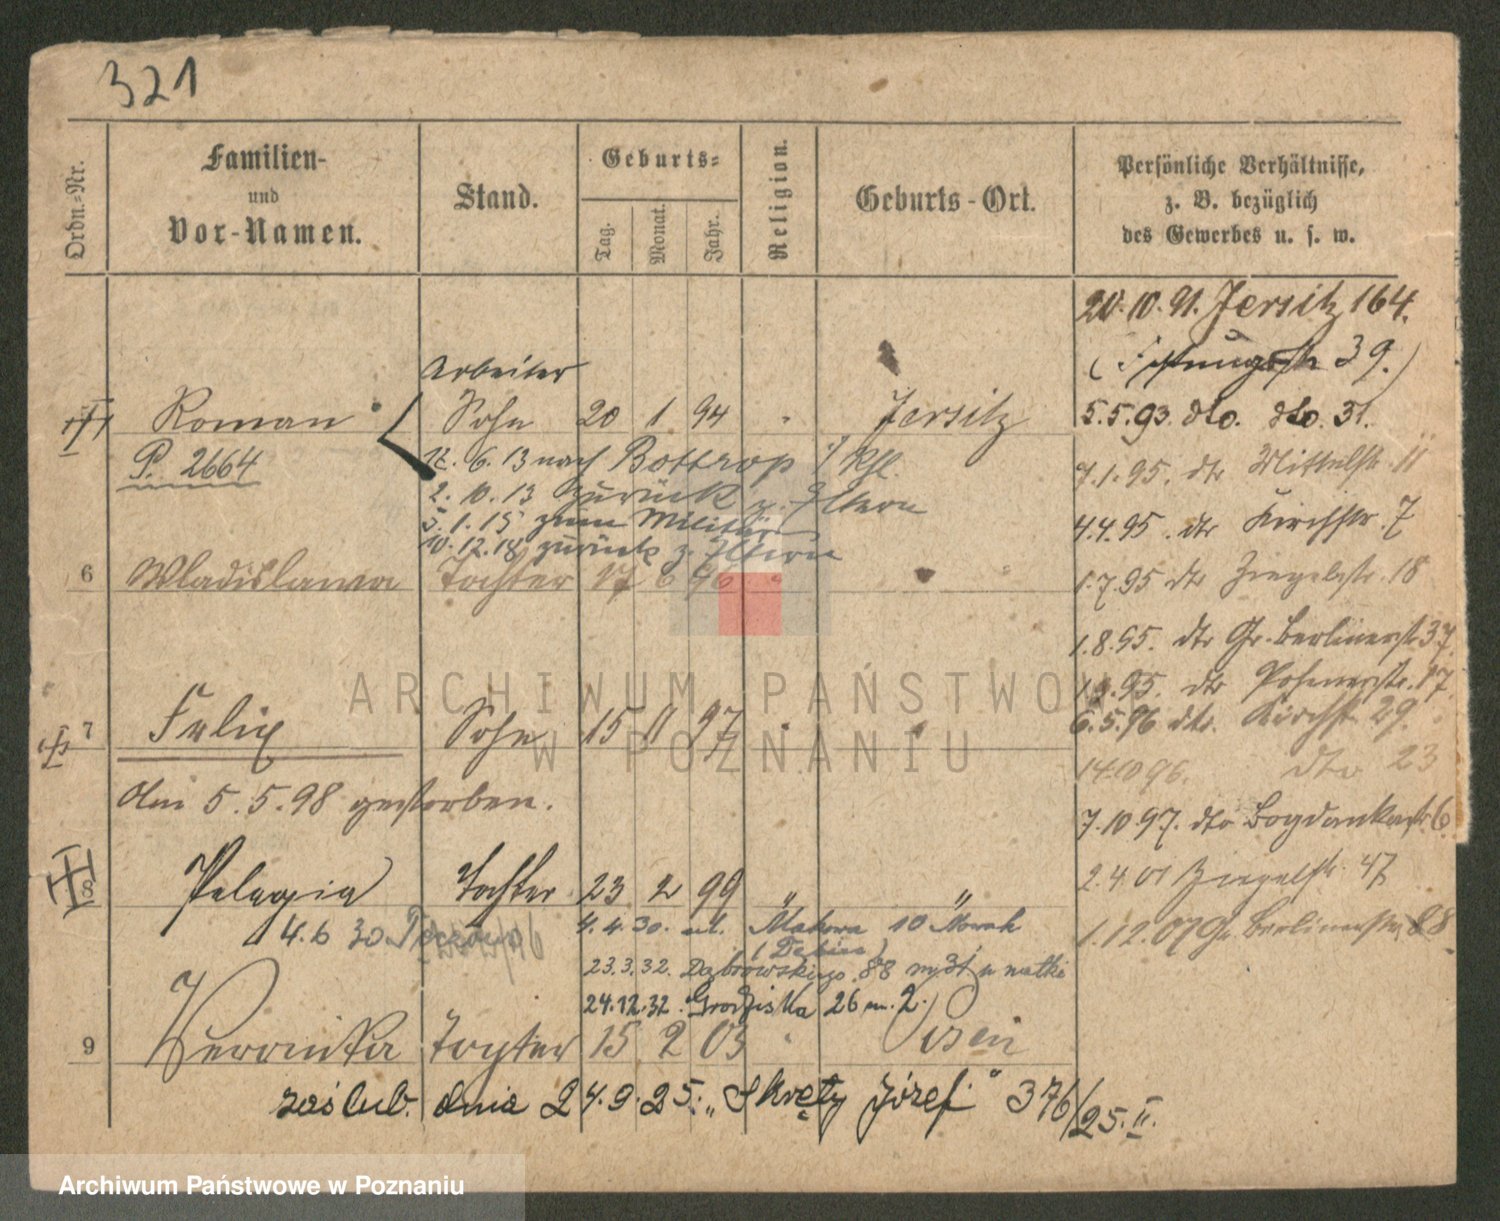 321
Ordn.-Nr.
Familien-
und
Vor-Namen.
Stand.
Geburts-
Tag.
Monat.
Jahr.
Religion.
Geburts-Ort.
Persönliche Verhältnisse,
z. B. bezüglich
des Gewerbes u. s. w.
20.10.91. Jersitz 164.
( 39.)
Arbeiter
Roman Sohn 20 1 94 Jersitz
5.5.93. dto. dto. 31.
P. 2664
12. 6. 13 nach Bottrop
7.1.95. dto Mittelstr. 11
2. 10. 13 zurück z. Eltern
5. 1. 15 zum Militär
4.4.95. dto Kirchstr. 7
10. 12. 18 zurück z. Eltern
6 Wladislawa Tochter 17 6 96 "
1.7.95 dto Ziegelstr. 18
1.8.95. dto Gr. Berlinerstr 37.
95. dto Posenerstr. 17.
7 Felix Sohn 15 11 97
6.5.96 dto. Kirchstr. 29.
14.10 96. dto 23
den 5. 5. 98 gestorben.
7.10.97. dto Bogdankastr. 6.
8 Pelagia Tochter 23 2 99 " "
2.4.01 Ziegelstr. 47
4.6 30
4.4.30. ul. 10 Nowak
1.12.07 Gr. Berlinerstr. 88
23.3.32. Dąbrowskiego 88
24.12.32. Grodziska 26 m. 2.
9 Weronika Tochter 15 2 03 " Posen
zaślub. dnia 24.9.25. „Skręty Józef" 376/25. II.
ARCHIWUM PAŃSTWOWE
W POZNANIU
Archiwum Państwowe w Poznaniu